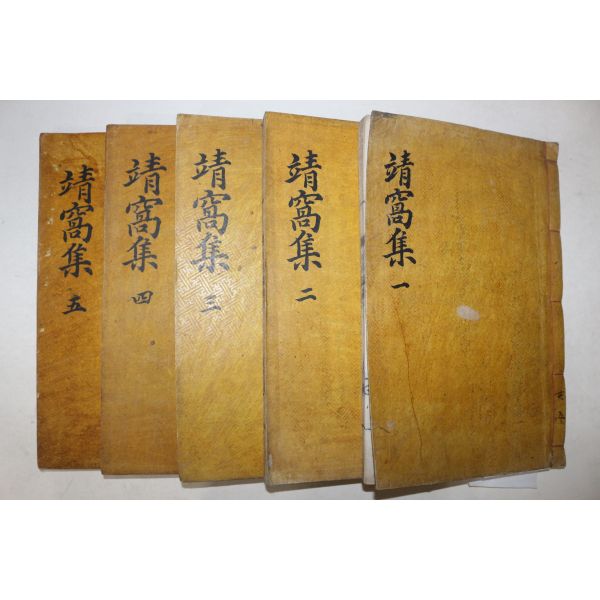 靖窩集 一
靖窩集 二
靖窩集 三
靖窩集 四
靖窩集 五
共五